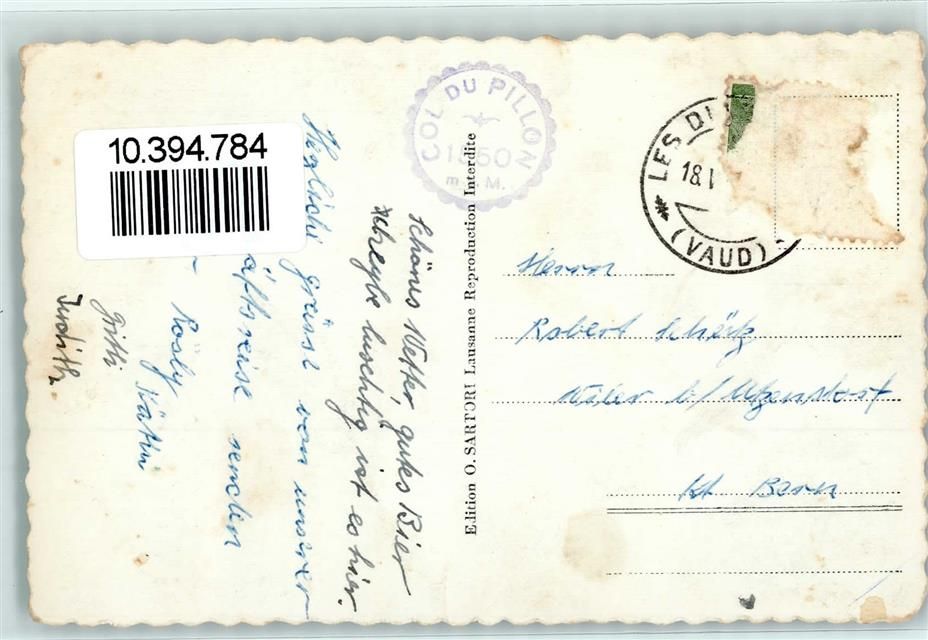 10.394.784
COL DU PILLON
1550
m.ü.M.
LES DI
18.
(VAUD)
Edition O. SARTORI Lausanne Reproduction Interdite
Herzlichi grüsse von unserer
äftsreise senden
Rösly Käthi
Gritli
Judith.
Schöns Wetter, gutes Bier
luschtig ist es hier.
Herrn
Robert Schärz
Wiler b/Utzenstorf
Kt Bern